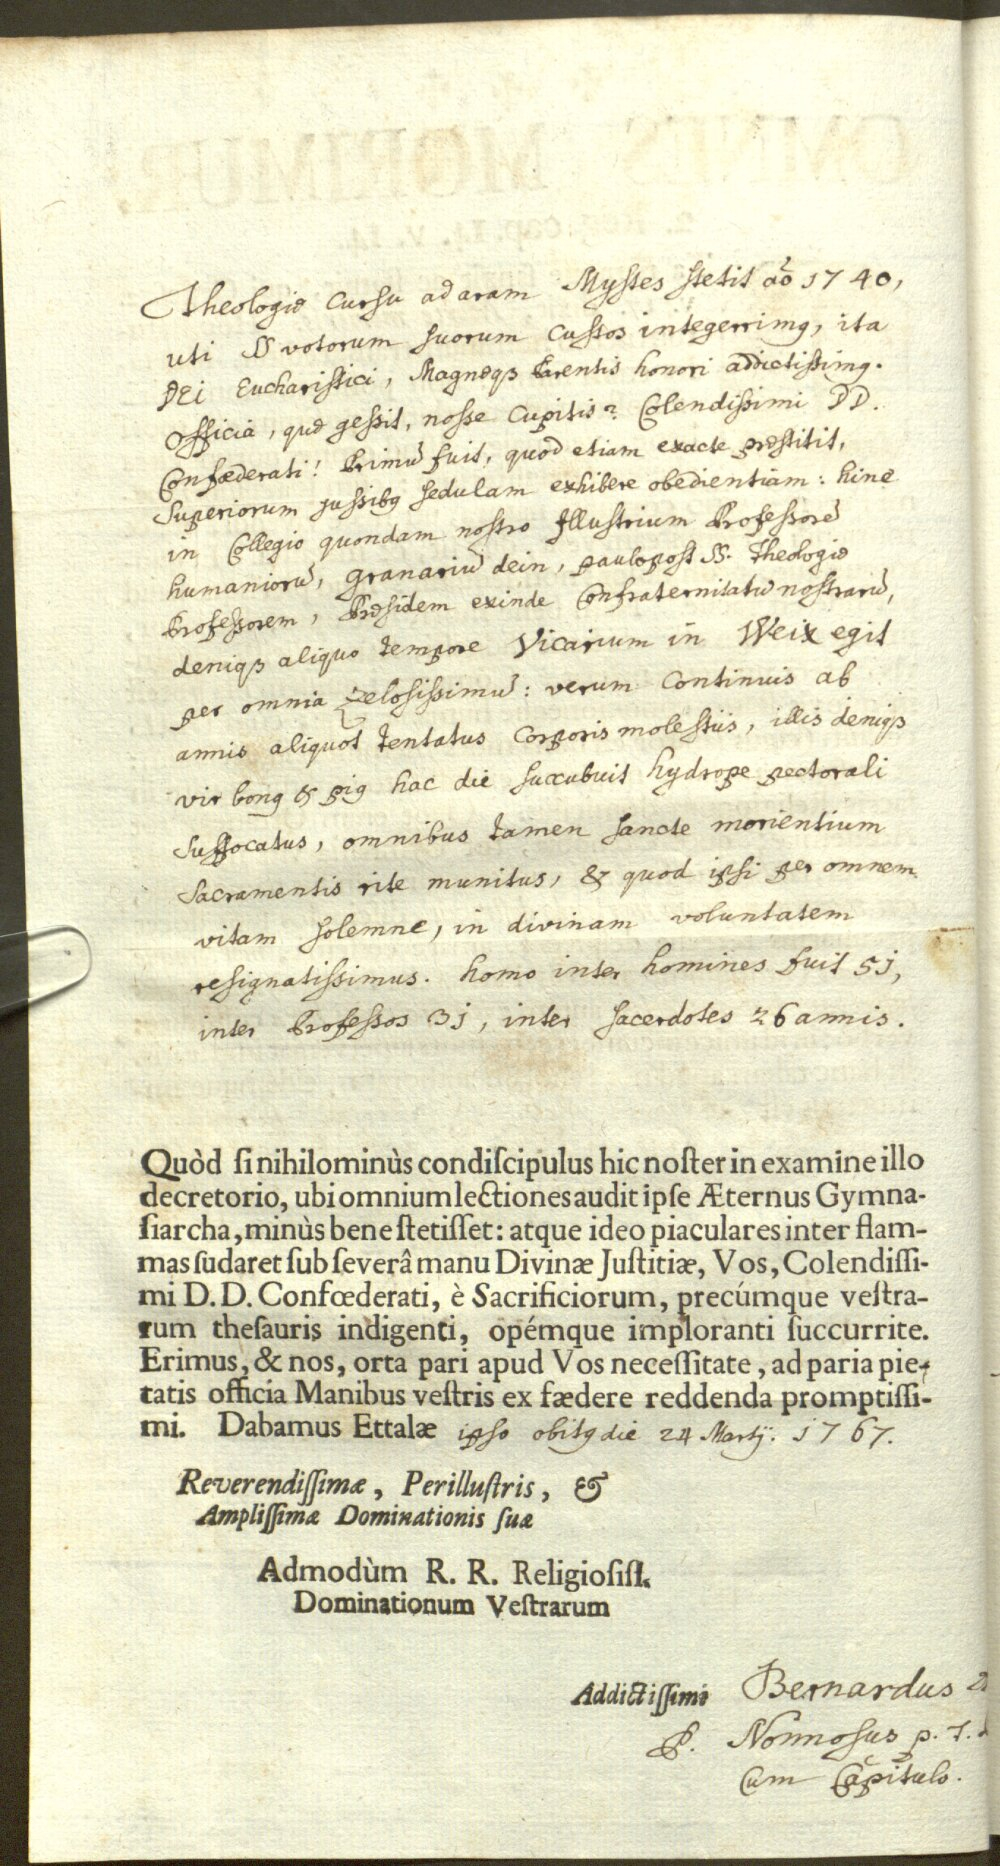 Theologiæ cursu ad aram Mystes stetit aõ 1740,
uti SS votorum suorum custos integerrimꝰ, ita
DEi Eucharistici, Magnæqꝫ Parentis honori addictissimꝰ.
Officia, quæ gessit, nosse cupitis? Colendissimi DD.
Confæderati! Primū fuit, quod etiam exacte præstitit,
Superiorum jussibꝰ sedulam exhibere obedientiam: hinc
in Collegio quondam nostro Illustrium Professorē
humaniorū, granariū dein, paulo post SS. Theologiæ
Professorem, Præsidem exinde Confraternitatū nostrarū,
deniqꝫ aliquo tempore Vicarium in Weix egit
per omnia zelosissimū: verum continuis ab
annis aliquot tentatus corporis molestiis, illis deniqꝫ
vir bonꝰ & piꝰ hac die succubuit hydrope pectorali
suffocatus, omnibus tamen sancte morientium
Sacramentis rite munitus, & quod ipsi per omnem
vitam solemne, in divinam voluntatem
resignatissimus. homo inter homines fuit 51,
inter Professos 31, inter sacerdotes 26 annis.
Quòd ſi nihilominùs condiſcipulus hic noſter in examine illo
decretorio, ubi omnium lectiones audit ipſe Æternus Gymna-
ſiarcha, minùs bene ſtetiſſet: atque ideo piaculares inter flam-
mas ſudaret ſub ſeverâ manu Divinæ Juſtitiæ, Vos, Colendiſſi-
mi D. D. Confœderati, è Sacrificiorum, precúmque veſtra-
rum theſauris indigenti, opémque imploranti ſuccurrite.
Erimus, & nos, orta pari apud Vos neceſſitate, ad paria pie-
tatis officia Manibus veſtris ex fædere reddenda promptiſſi-
mi. Dabamus Ettalæ ipso obitꝰ die 24 Martij. 1767.
Reverendiſſimæ, Perilluſtris, &
Ampliſſimæ Dominationis ſuæ
Admodùm R. R. Religioſiſſ.
Dominationum Veſtrarum
Addictiſſimi Bernardus
P. Nonnosus p. t.
Cum Capitulo.